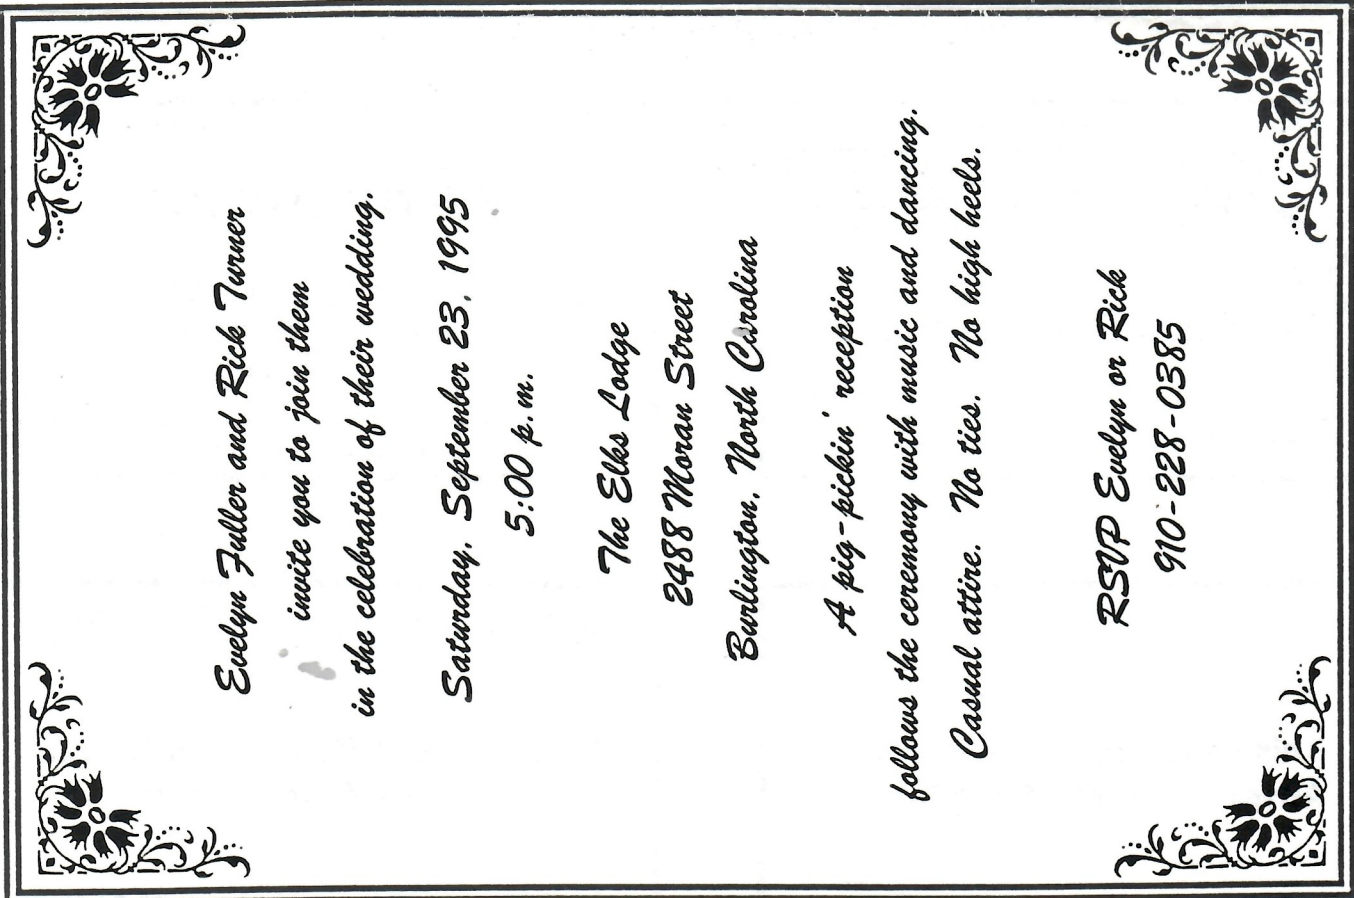 Evelyn Fuller and Rick Turner
invite you to join them
in the celebration of their wedding.
Saturday, September 23, 1995
5:00 p.m.
The Elks Lodge
2488 Moran Street
Burlington, North Carolina
A pig-pickin' reception
follows the ceremony with music and dancing.
Casual attire. No ties. No high heels.
RSVP Evelyn or Rick
910-228-0385